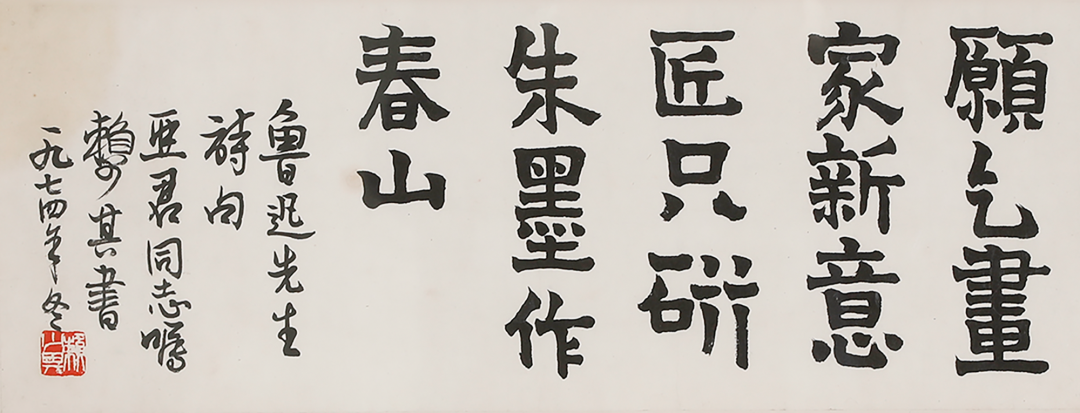 願乞畫
家新意
匠只研
朱墨作
春山
魯迅先生
詩句
亞君同志囑
賴少其書
一九七四年冬
賴少其